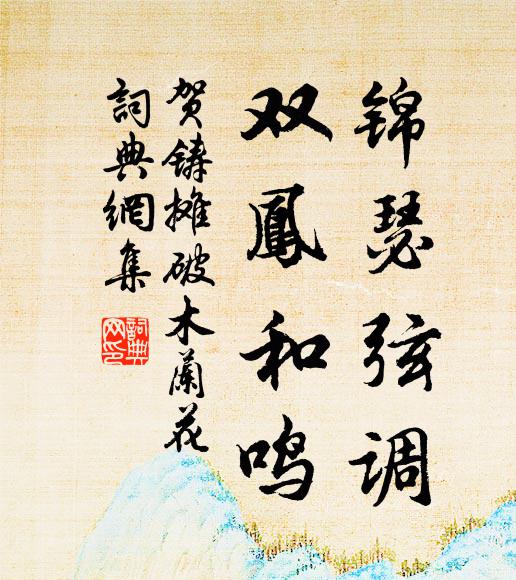 锦瑟弦调
双鳳和鸣
贺铸摊破木蘭花
詞典網集
詞典網印